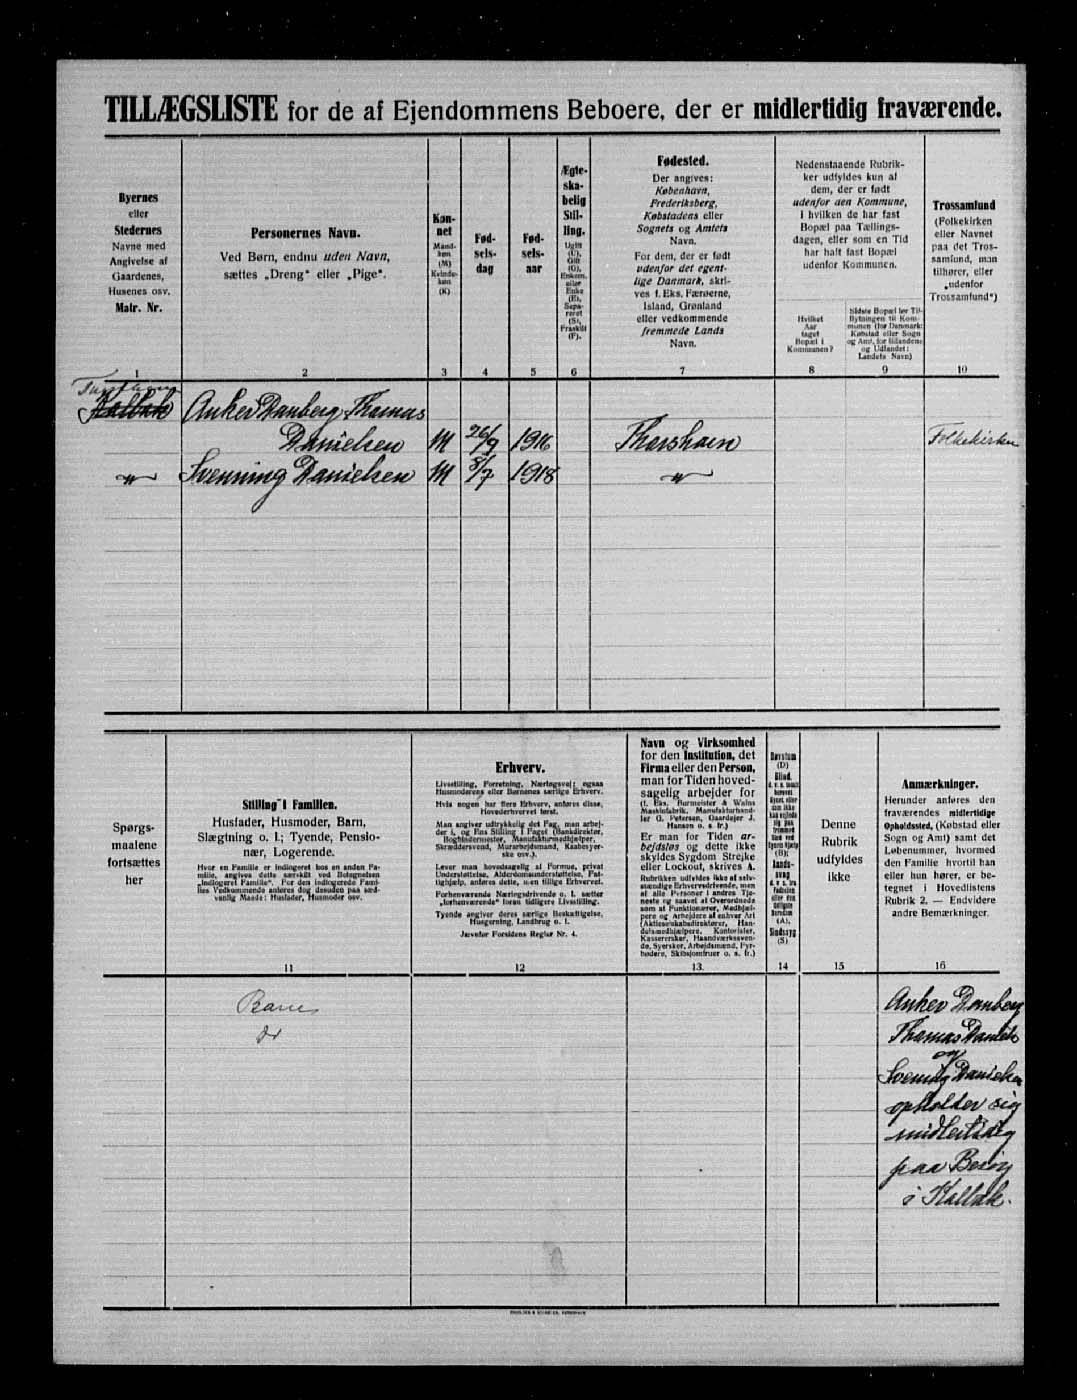 TILLÆGSLISTE for de af Ejendommens Beboere, der er midlertidig fraværende.
Byernes
eller
Stedernes
Navne med
Angivelse af
Gaardenes,
Husenes osv.
Matr. Nr.
Personernes Navn.
Ved Børn, endnu uden Navn,
sættes „Dreng“ eller „Pige“.
Køn-
net
Mand-
køn
(M)
Kvinde-
køn
(K)
Fød-
sels-
dag
Fød-
sels-
aar
Ægte-
ska-
belig
Stil-
ling.
Ugift
(U),
Gift
(G),
Enkem.
eller
Enke
(E),
Sepa-
reret
(S),
Fraskilt
(F).
Fødested.
Der angives:
København,
Frederiksberg,
Købstadens eller
Sognets og Amtets
Navn.
For dem, der er født
udenfor det egent-
lige Danmark, skri-
ves f. Eks. Færøerne,
Island, Grønland
eller vedkommende
fremmede Lands
Navn.
Nedenstaaende Rubrik-
ker udfyldes kun af
dem, der er født
udenfor den Kommune,
i hvilken de har fast
Bopæl paa Tællings-
dagen, eller som en Tid
har haft fast Bopæl
udenfor Kommunen.
Hvilket
Aar
taget
Bopæl i
Kommunen?
Sidste Bopæl før Til-
flytningen til Kom-
munen (for Danmark:
Købstad eller Sogn
og Amt, for Bilandene
og Udlandet:
Landets Navn)
Trossamfund
(Folkekirken
eller Navnet
paa det Tros-
samfund, man
tilhører, eller
„udenfor
Trossamfund“)
1 2 3 4 5 6 7 8 9 10
Kalbak Anker Danberg Thomas
Danielsen M 26/9 1916 Thorshavn Folkekirken
" Svenning Danielsen M 8/7 1918 "
Spørgs-
maalene
fortsættes
her
Stilling i Familien.
Husfader, Husmoder, Barn,
Slægtning o. l.; Tyende, Pensio-
nær, Logerende.
Hvor en Familie er indlogeret hos en anden Fa-
milie, angives dette særskilt ved Betegnelsen
„Indlogeret Familie“. For den indlogerede Fami-
lies Vedkommende anføres dog desuden paa sæd-
vanlig Maade: Husfader, Husmoder osv.
Erhverv.
Livsstilling, Forretning, Næringsvej; ogsaa
Husmoderens eller Børnenes særlige Erhverv.
Hvis nogen har flere Erhverv, anføres disse,
Hovederhvervet først.
Man angiver udtrykkelig det Fag, man arbej-
der i, og Ens Stilling i Faget (Bankdirektør,
Bogbindermester, Manufakturmedhjælper,
Skræddersvend, Murarbejdsmand, Kaabesyer-
ske osv.).
Lever man hovedsagelig af Formue, privat
Understøttelse, Alderdomsunderstøttelse, Fat-
tighjælp, anføres dette, uden tillige Erhvervet.
Forhenværende Næringsdrivende o. l. sætter
„forhenværende“ foran tidligere Livsstilling.
Tyende angiver deres særlige Beskæftigelse,
Husgerning, Landbrug o. l.
Jævnfør Forsidens Regler Nr. 4.
Navn og Virksomhed
for den Institution, det
Firma eller den Person,
man for Tiden hoved-
sagelig arbejder for
(f. Eks. Burmeister & Wains
Maskinfabrik, Manufakturhand-
ler G. Petersen, Gaardejer J.
Hansen o. s fr.)
Er man for Tiden ar-
bejdsløs og dette ikke
skyldes Sygdom Strejke
eller Lockout, skrives A.
Rubrikken udfyldes ikke af selv-
stændige Erhvervsdrivende, men
af alle Personer i andres Tje-
neste og saavel af Overordnede
som af Funktionærer, Medhjæl-
pere og Arbejdere af enhver Art
(Aktieselskabsdirektører, Han-
delsmedhjælpere, Kontorister,
Kassererskér, Haandværkssven-
de, Syersker, Arbejdsmænd, Fyr-
bødere, Skibsjomfruer o. s. fr.)
Døvstum
(D)
Blind,
(B);
Sindssyg
(S)
Denne
Rubrik
udfyldes
ikke
Anmærkninger.
Herunder anføres den
fraværendes midlertidige
Opholdssted, (Købstad eller
Sogn og Amt) samt det
Løbenummer, hvormed
den Familie hvortil han
eller hun hører, er be-
tegnet i Hovedlistens
Rubrik 2. — Endvidere
andre Bemærkninger.
11 12 13. 14 15 16
Barn
do
Anker Danberg
Thomas Daniels
og
Svenning Danielsen
opholder sig
midlertidig
paa Besøg
i Kalbak.